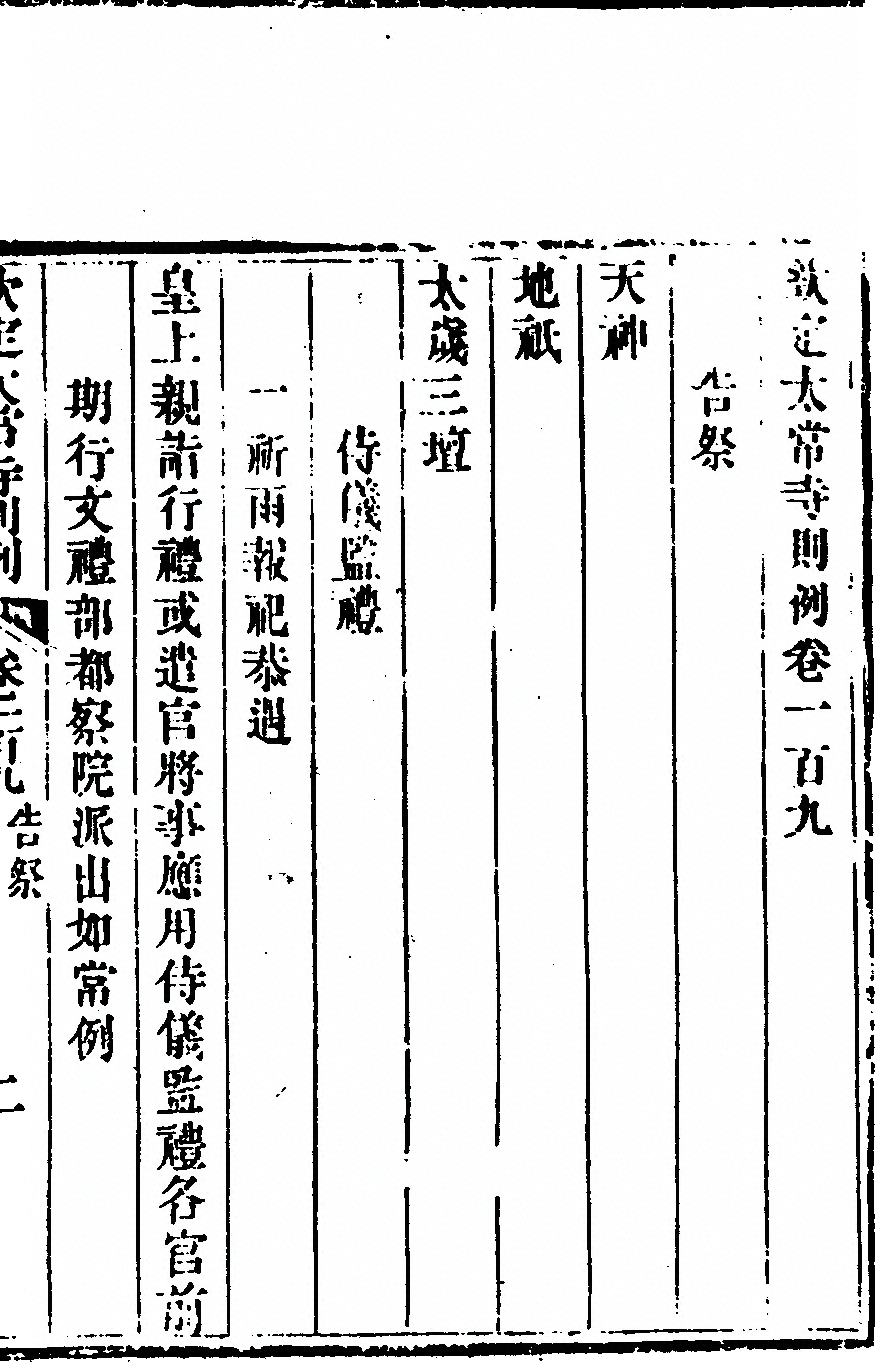 欽定太常寺則例卷一百九
告祭
天神
地祇
太歲三壇
侍儀監禮
一祈雨報祀恭遇
皇上親詣行禮或遣官將事應用侍儀監禮各官前
期行文禮部都察院派出如常例
欽定太常寺則例
卷一百九 告祭 一